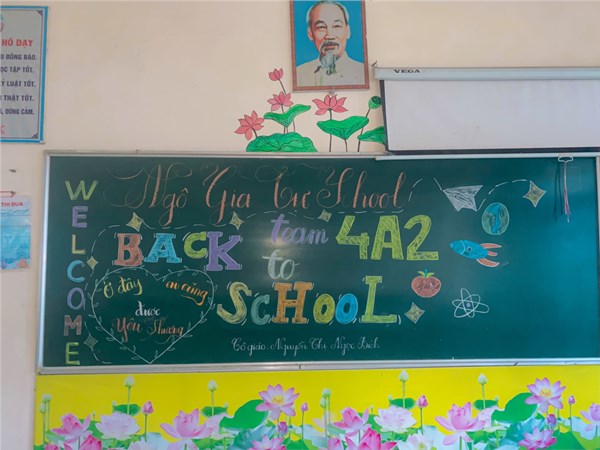 HỒ DẠY
ĐỒNG BÀO.
ỌC TẬP TỐT,
KỶ LUẬT TỐT.
THẬT TỐT.
DŨNG CẢM.
VEGA
THI ĐUA
WELCOME
Ngô Gia Tự School
BACK team 4A2
to
SCHOOL
Ở đây ai cũng
được
Yêu Thương
Cô giáo: Nguyễn Thị Ngọc